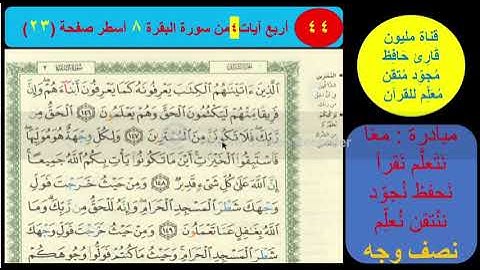 ٤٤
أربع آيات ٤ من سورة البقرة ٨ أسطر صفحة (٢٣)
قناة مليون
قارئ حافظ
مُجوّد مُتقن
مُعلّم للقرآن
مبادرة : معًا
نَتَعلّم نَقرأ
نَحفظ نُجوّد
نَتْقن نُعلّم
نصف وجه
ٱلَّذِينَ ءَاتَيْنَٰهُمُ ٱلْكِتَٰبَ يَعْرِفُونَهُۥ كَمَا يَعْرِفُونَ أَبْنَآءَهُمْ ۖ وَإِنَّ
فَرِيقًا مِّنْهُمْ لَيَكْتُمُونَ ٱلْحَقَّ وَهُمْ يَعْلَمُونَ ١٤٦ ٱلْحَقُّ مِن
رَّبِّكَ ۖ فَلَا تَكُونَنَّ مِنَ ٱلْمُمْتَرِينَ ١٤٧ وَلِكُلٍّ وِجْهَةٌ هُوَ مُوَلِّيهَا ۖ
فَٱسْتَبِقُوا۟ ٱلْخَيْرَٰتِ ۚ أَيْنَ مَا تَكُونُوا۟ يَأْتِ بِكُمُ ٱللَّهُ جَمِيعًا ۚ
إِنَّ ٱللَّهَ عَلَىٰ كُلِّ شَىْءٍ قَدِيرٌ ١٤٨ وَمِنْ حَيْثُ خَرَجْتَ فَوَلِّ
وَجْهَكَ شَطْرَ ٱلْمَسْجِدِ ٱلْحَرَامِ ۖ وَإِنَّهُۥ لَلْحَقُّ مِن رَّبِّكَ ۗ وَمَا
ٱللَّهُ بِغَٰفِلٍ عَمَّا تَعْمَلُونَ ١٤٩ وَمِنْ حَيْثُ خَرَجْتَ فَوَلِّ وَجْهَكَ
شَطْرَ ٱلْمَسْجِدِ ٱلْحَرَامِ ۚ وَحَيْثُ مَا كُنتُمْ فَوَلُّوا۟ وُجُوهَكُمْ